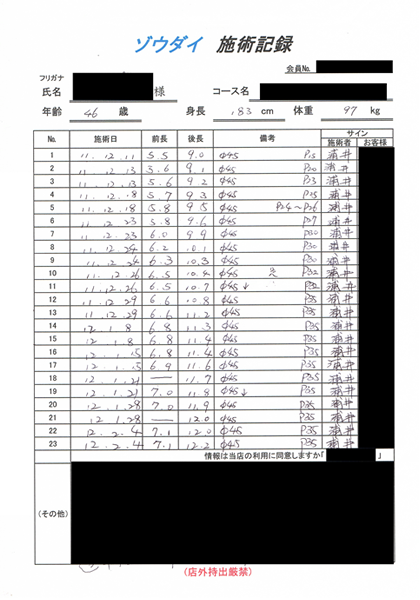 ゾウダイ 施術記録
会員No.
フリガナ
氏名 様 コース名
年齢 46 歳 身長 183 cm 体重 97 kg
No. 施術日 前長 後長 備考 サイン
施術者 お客様
1 11.12.11 5.5 9.0 Φ45 P15 浦井
2 11.12.13 5.6 9.1 Φ45 P20 浦井
3 11.12.13 5.6 9.2 Φ45 P23 浦井
4 11.12.18 5.7 9.3 Φ45 P25 浦井
5 11.12.18 5.8 9.5 Φ45 P24~P26 浦井
6 11.12.23 5.8 9.6 Φ45 P27 浦井
7 11.12.23 6.0 9.9 Φ45 P30 浦井
8 11.12.24 6.2 10.1 Φ45 P30 浦井
9 11.12.24 6.3 10.3 Φ45 P30 浦井
10 11.12.26 6.5 10.4 Φ45 P32 浦井
11 11.12.26 6.5 10.7 Φ45↓ P32 浦井
12 11.12.29 6.6 10.8 Φ45 P35 浦井
13 11.12.29 6.6 11.2 Φ45 P35 浦井
14 12.1.8 6.8 11.3 Φ45 P35 浦井
15 12.1.8 6.8 11.4 Φ45 P35 浦井
16 12.1.15 6.8 11.4 Φ45 P35 浦井
17 12.1.15 6.9 11.6 Φ45 P35 浦井
18 12.1.21 — 11.7 Φ45 P35 浦井
19 12.1.21 7.0 11.8 Φ45↓ P35 浦井
20 12.1.28 7.0 11.9 Φ45 P35 浦井
21 12.1.28 — 12.0 Φ45 P35 浦井
22 12.2.4 7.1 12.0 Φ45 P35 浦井
23 12.2.4 7.1 12.2 Φ45 P35 浦井
情報は当店の利用に同意しますか「 」
(その他)
(店外持出厳禁)